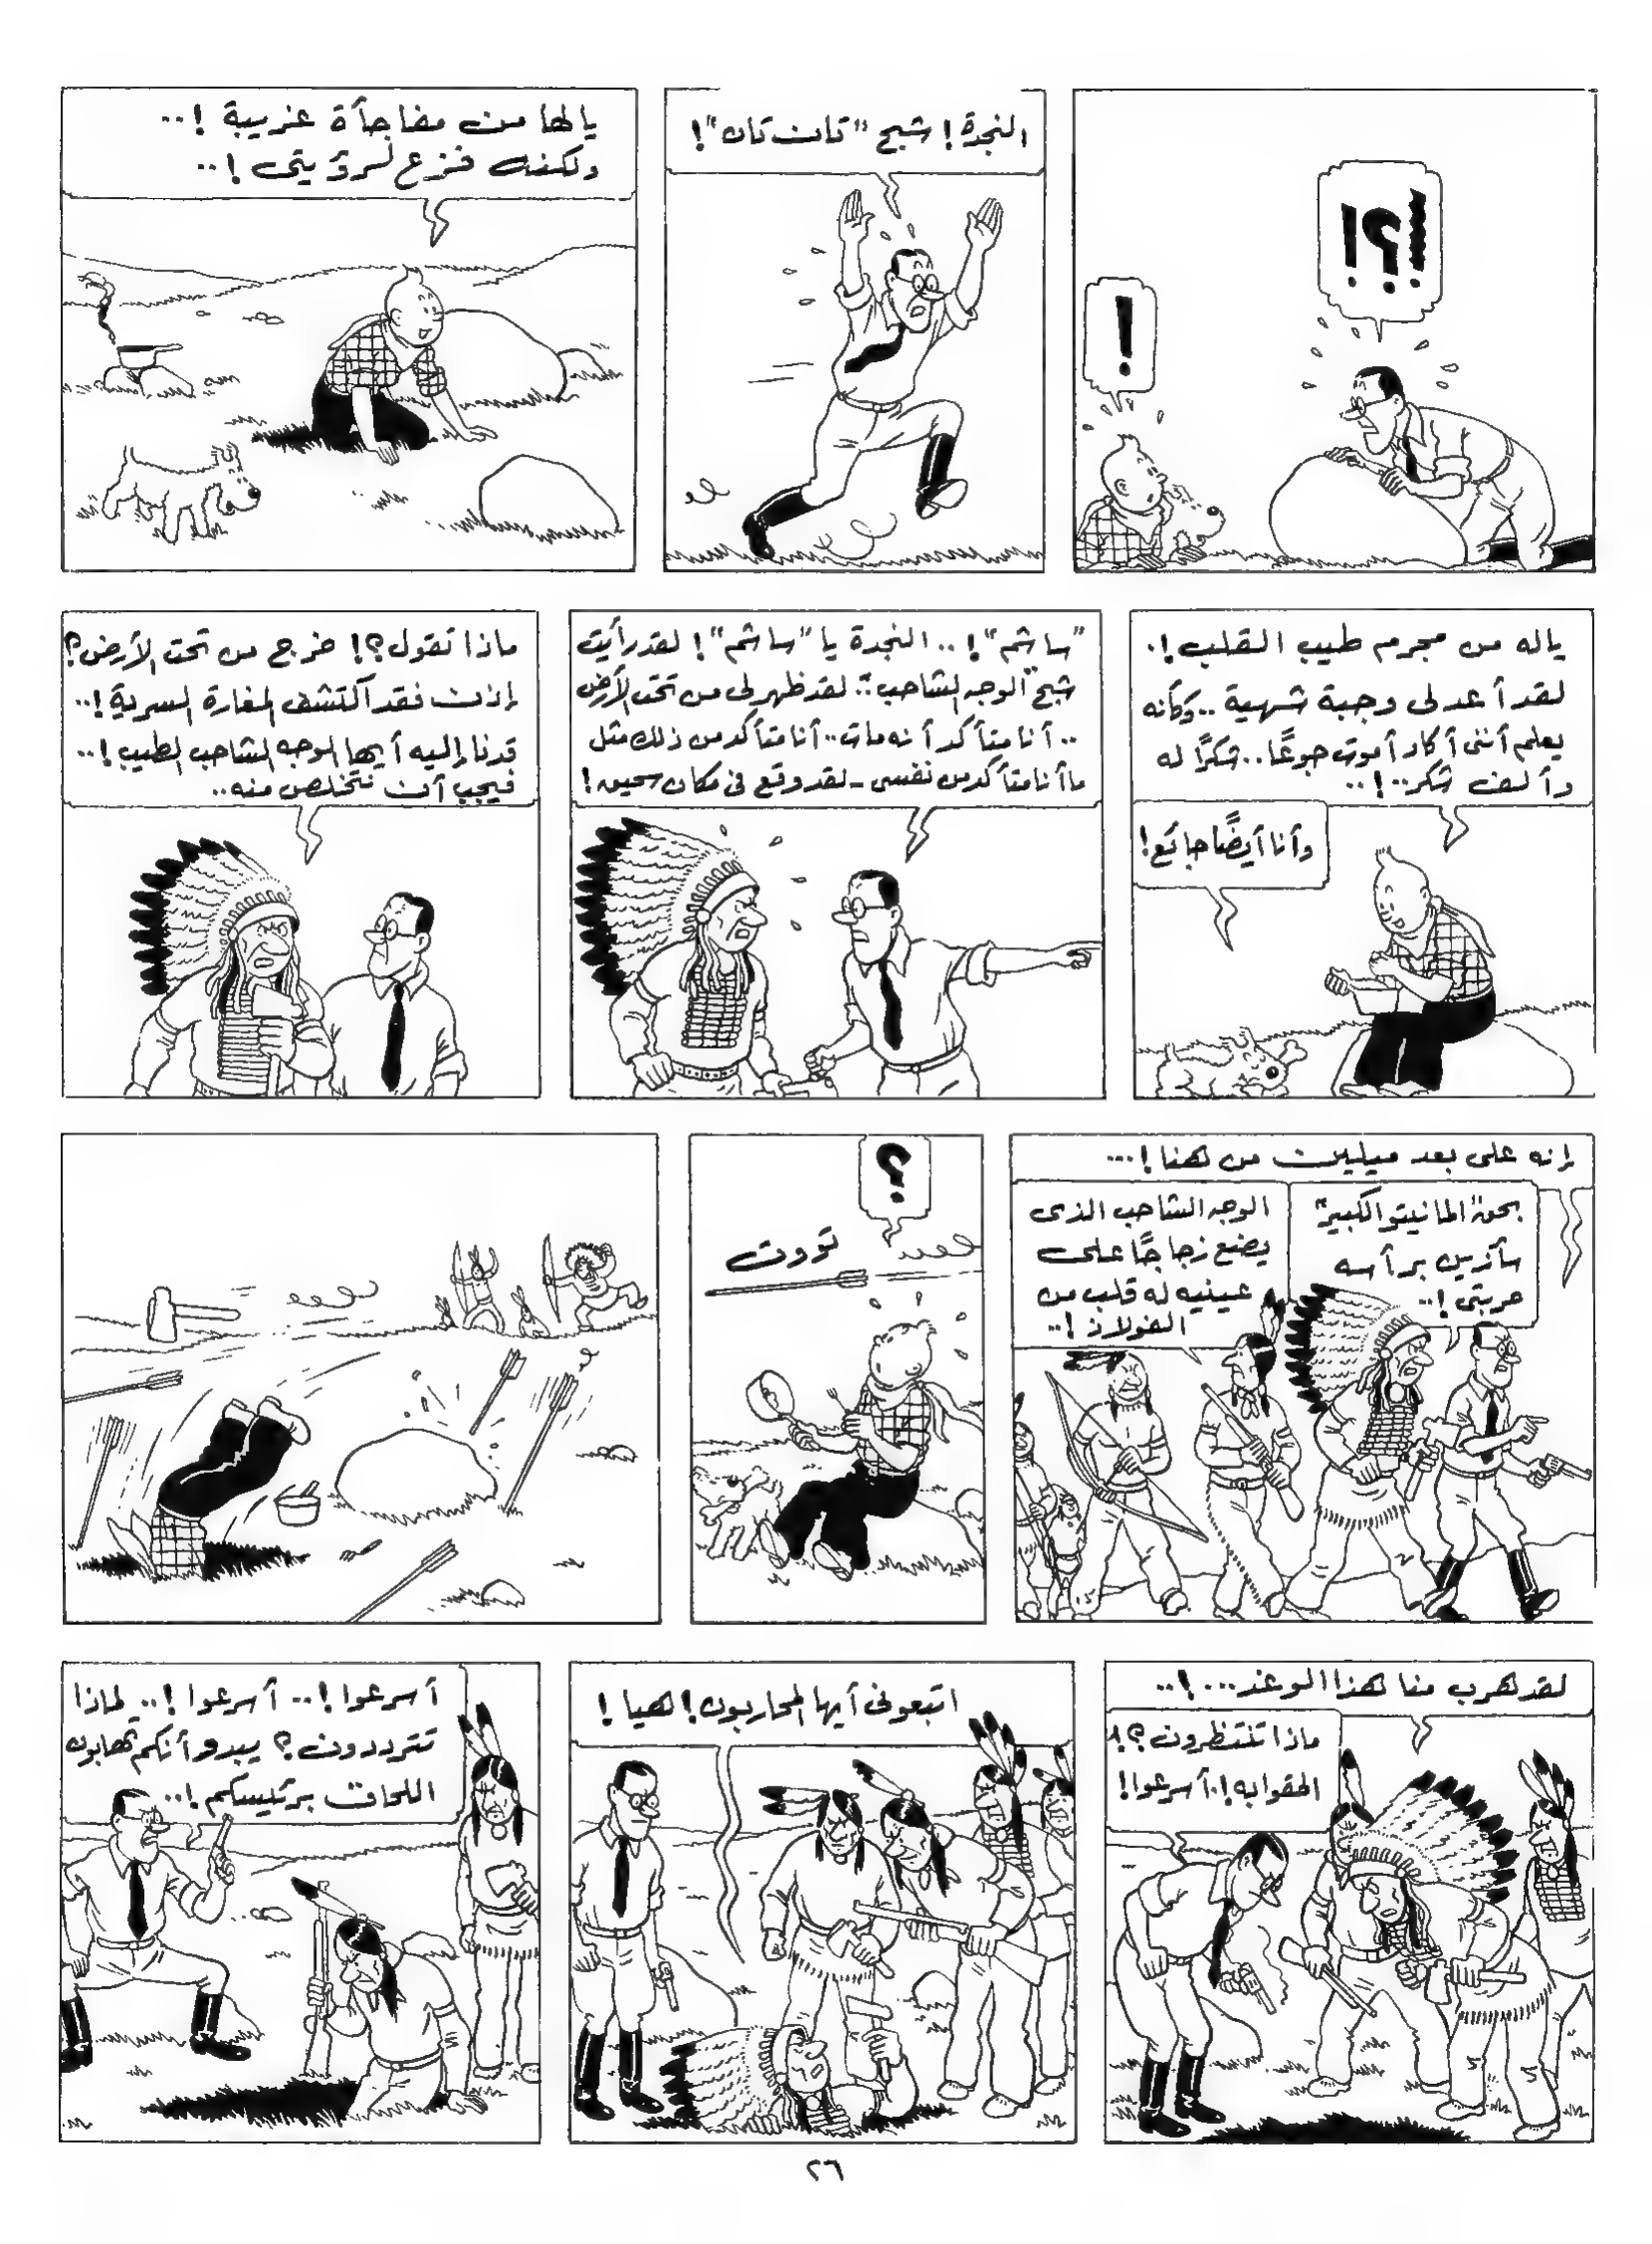 !
!؟!
النجدة! شبح "تان تان"!
يالها من مفاجأة غريبة!..
ولكنه فزع لرؤيتى!..
ياله من مجرم طيب القلب!.
لقد أعد لى وجبة شهية.. وكأنه
يعلم أننى أكاد أموت جوعًا.. شكرًا له
وألف شكر..!..
وأنا أيضًا جائع!
"ساشم"!.. النجدة يا "ساشم"! لقد رأيت
شبح "الوجه الشاحب".. لقد ظهر لى من تحت الأرض
.. أنا متأكد أنه مات.. أنا متأكد من ذلك مثل
ما أنا متأكد من نفسى - لقد وقع فى مكان سحيق!
ماذا تقول؟! خرج من تحت الأرض؟
إذن فقد اكتشف المغارة السرية!..
قدنا إليه أيها الوجه الشاحب الطيب!..
فيجب أن نتخلص منه..
إنه على بعد ميلين من هنا!...
بحق "المانيتو الكبير"
سأزين برأسه
حربتى!..
الوجه الشاحب الذى
يضع زجاجًا على
عينيه له قلب من
الفولاذ!..
؟
توووت
لقد هرب منا هذا الوغد...!..
ماذا تنتظرون؟!
الحقوا به!. أسرعوا!
اتبعونى أيها المحاربون! هيا!
أسرعوا!.. أسرعوا!.. لماذا
تترددون؟ يبدو أنكم تهابون
اللحاق برئيسكم!..
٢٦